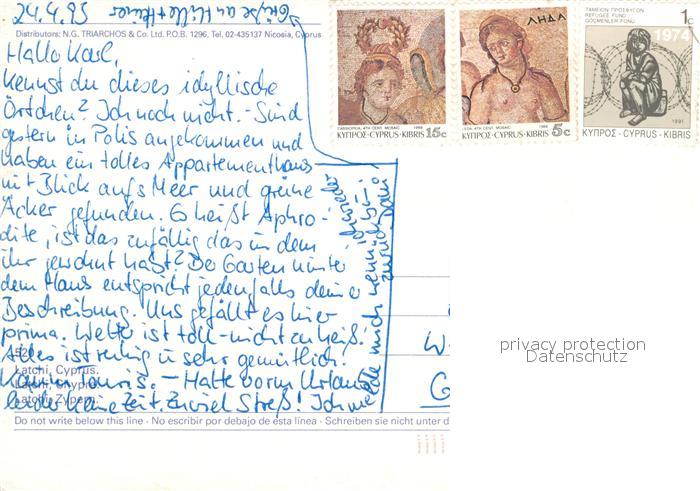 24.4.93
Grüße an Hille + Heiner
Distributors: N.G. TRIARCHOS & Co. Ltd. P.O.B. 1296, Tel. 02-435137 Nicosia, Cyprus
Hallo Karl,
kennst du dieses idyllische
Örtchen? Ich noch nicht. - Sind
gestern in Polis angekommen und
haben ein tolles Appartementhaus
mit Blick aufs Meer und grüne
Äcker gefunden. Es heißt Aphro-
dite, ist das zufällig das in dem
ihr gewohnt habt? Der Garten hinter
dem Haus entspricht jedenfalls deiner
Beschreibung. Uns gefällt es hier
prima. Wetter ist toll - nicht zu heiß.
Alles ist ruhig u sehr gemütlich.
Kaum Touris. - Hatte vorm Urlaub
leider keine Zeit. Zuviel Streß! Ich me
lde mich wenn ich wieder
zurück bin.
Latchi, Cyprus.
Do not write below this line - No escribir por debajo de esta línea - Schreiben sie nicht unter d
ΛΗΔΑ
CASSIOPEIA, 4TH CENT. MOSAIC 1989
15c
ΚΥΠΡΟΣ-CYPRUS-KIBRIS
LEDA, 4TH CENT. MOSAIC 1989
5c
ΚΥΠΡΟΣ-CYPRUS-KIBRIS
ΤΑΜΕΙΟΝ ΠΡΟΣΦΥΓΩΝ
REFUGEE FUND
GÖÇMENLER FONU
1c
1974
1991
ΚΥΠΡΟΣ-CYPRUS-KIBRIS
W
G
privacy protection
Datenschutz